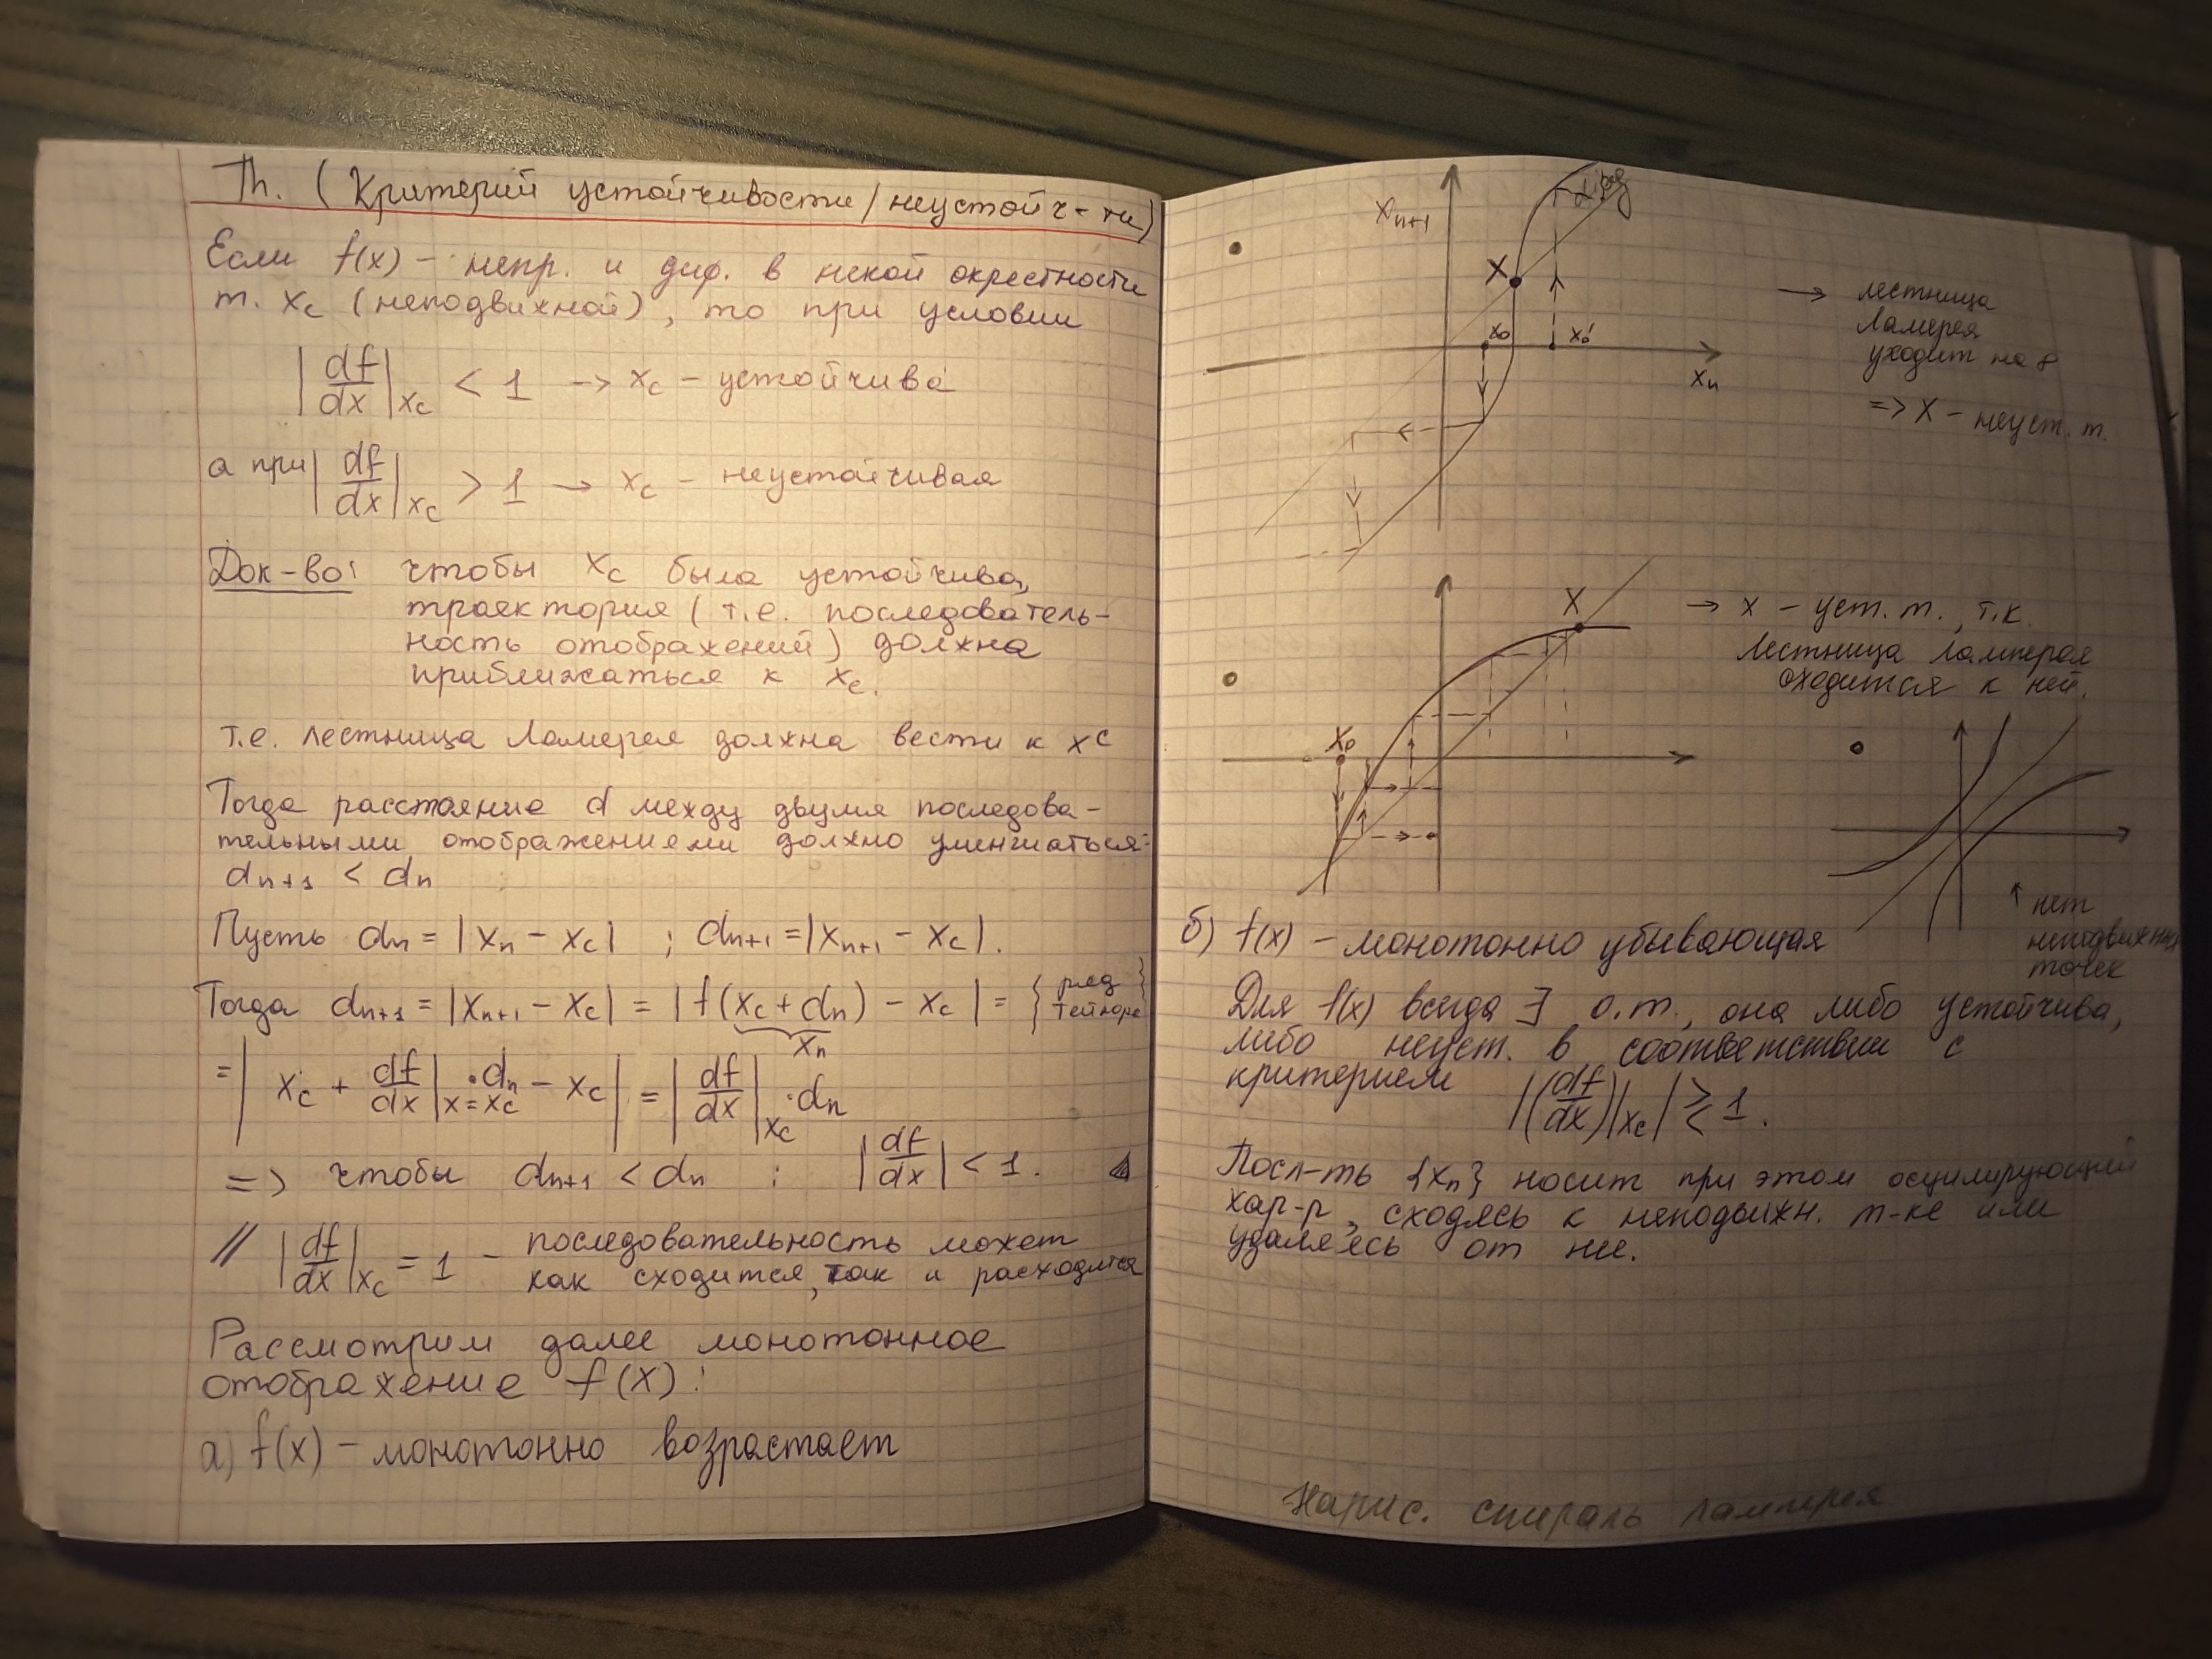 Th. (Критерий устойчивости/неустойч-ти)
Если f(x) – непр. и диф. в некой окрестности
т. x_c (неподвижной), то при условии
|df/dx|_{x_c} < 1 → x_c – устойчива
а при |df/dx|_{x_c} > 1 → x_c – неустойчивая
Док-во: чтобы x_c была устойчива,
траектория (т.е. последователь-
ность отображений) должна
приближаться к x_c.
т.е. лестница Ламерея должна вести к x^c
Тогда расстояние d между двумя последова-
тельными отображениями должно уменшаться:
d_{n+1} < d_n
Пусть d_n = |x_n – x_c| ; d_{n+1} = |x_{n+1} – x_c|.
Тогда d_{n+1} = |x_{n+1} – x_c| = |f(x_c + d_n) – x_c| = {ряд Тейлора}
x_n
= |x_c + df/dx|_{x=x_c} · d_n – x_c| = |df/dx|_{x_c} · d_n
=> чтобы d_{n+1} < d_n : |df/dx| < 1.
// |df/dx|_{x_c} = 1 – последовательность может
как сходится, так и расходится
Рассмотрим далее монотонное
отображение f(x):
а) f(x) – монотонно возрастает
x_{n+1}
X
x_0
x_0'
x_n
→ лестница
Ламерея
уходит на ∞
=> X – неуст. т.
X
x_0
→ x – уст. т., т.к.
Лестница Ламерея
сходится к ней.
↑ нет
неподвижных
точек
б) f(x) – монотонно убывающая
Для f(x) всегда ∃ о.т., она либо устойчива,
либо неуст. в соответствии с
критерием |(df/dx)|_{x_c}| ≷ 1.
Посл-ть {x_n} носит при этом осцилирующий
хар-р, сходясь к неподвижн. т-ке или
удаляясь от нее.
Нарис. спираль Ламерея